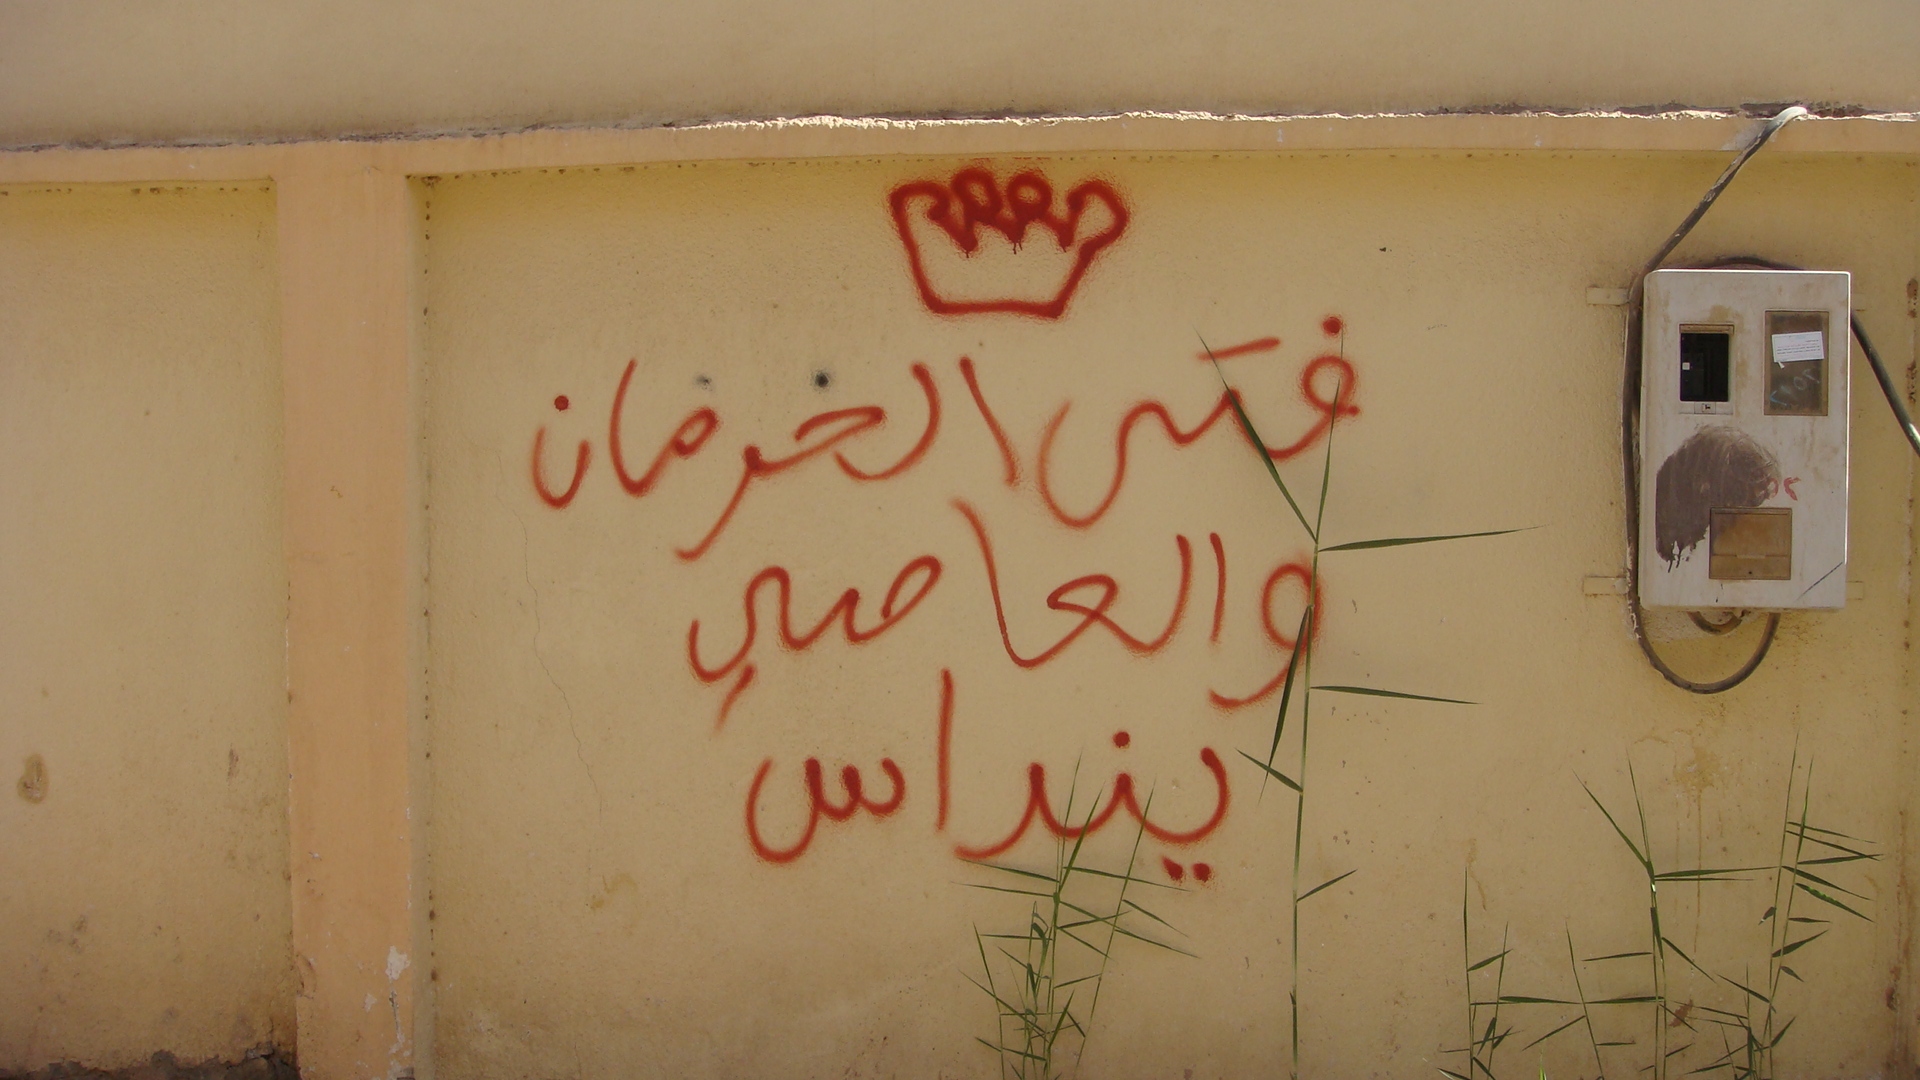 فتى الخرمان
والعاصي
ينداس